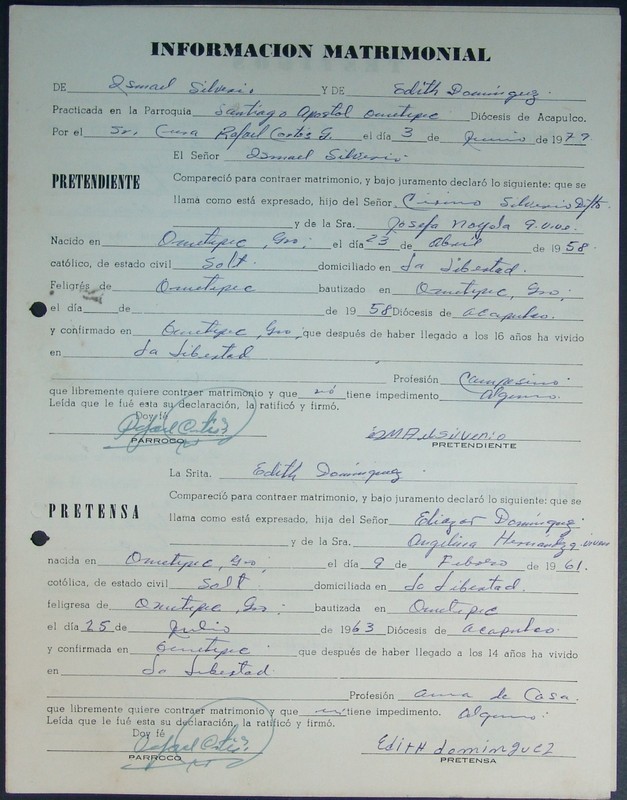 INFORMACION MATRIMONIAL
DE Ismael Silverio Y DE Edith Domínguez.
Practicada en la Parroquia Santiago Apostol Ometepec Diócesis de Acapulco.
Por el Sr. Cura Rafael Cortés G. el día 3 de Junio de 1977
El Señor Ismael Silverio
PRETENDIENTE
Compareció para contraer matrimonio, y bajo juramento declaró lo siguiente: que se
llama como está expresado, hijo del Señor Cirino Silverio Difto.
y de la Sra. Josefa Noyola q. vive.
Nacido en Ometepec, Gro; el día 23 de abril de 1958.
católico, de estado civil Solt domiciliado en La Libertad.
Feligrés de Ometepec bautizado en Ometepec, Gro;
el día de de 1958 Diócesis de acapulco.
y confirmado en Ometepec, Gro, que después de haber llegado a los 16 años ha vivido
en La Libertad
Profesión Campesino
que libremente quiere contraer matrimonio y que nó tiene impedimento Alguno.
Leída que le fué esta su declaración, la ratificó y firmó.
Doy fé
Rafael Cortés
PARROCO
ISMAel silverio
PRETENDIENTE
La Srita. Edith Domínguez.
PRETENSA
Compareció para contraer matrimonio, y bajo juramento declaró lo siguiente: que se
llama como está expresado, hija del Señor Eliazar Domínguez
y de la Sra. Angelina Hernández q. viven
nacida en Ometepec, Gro, el día 9 de Febrero de 1961.
cotólica, de estado civil Solt domiciliada en La Libertad.
feligresa de Ometepec, Gro: bautizada en Ometepec
el día 25 de Julio de 1963 Diócesis de acapulco
y confirmada en Ometepec que después de haber llegado a los 14 años ha vivido
en La Libertad
Profesión ama de Casa.
que libremente quiere contraer matrimonio y que tiene impedimento. Alguno.
Leída que le fué esta su declaración, la ratificó y firmó.
Doy fé
Rafael Cortés
PARROCO
Edith dominguez
PRETENSA